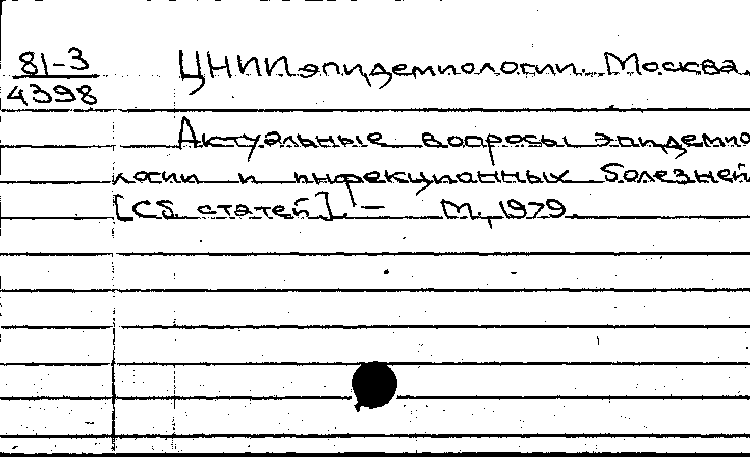 81-3
4398
ЦНИИ эпидемиологии. Москва.
Актуальные вопросы эпидемио
логии и инфекционных болезней
[Сб. статей]. — М., 1979.